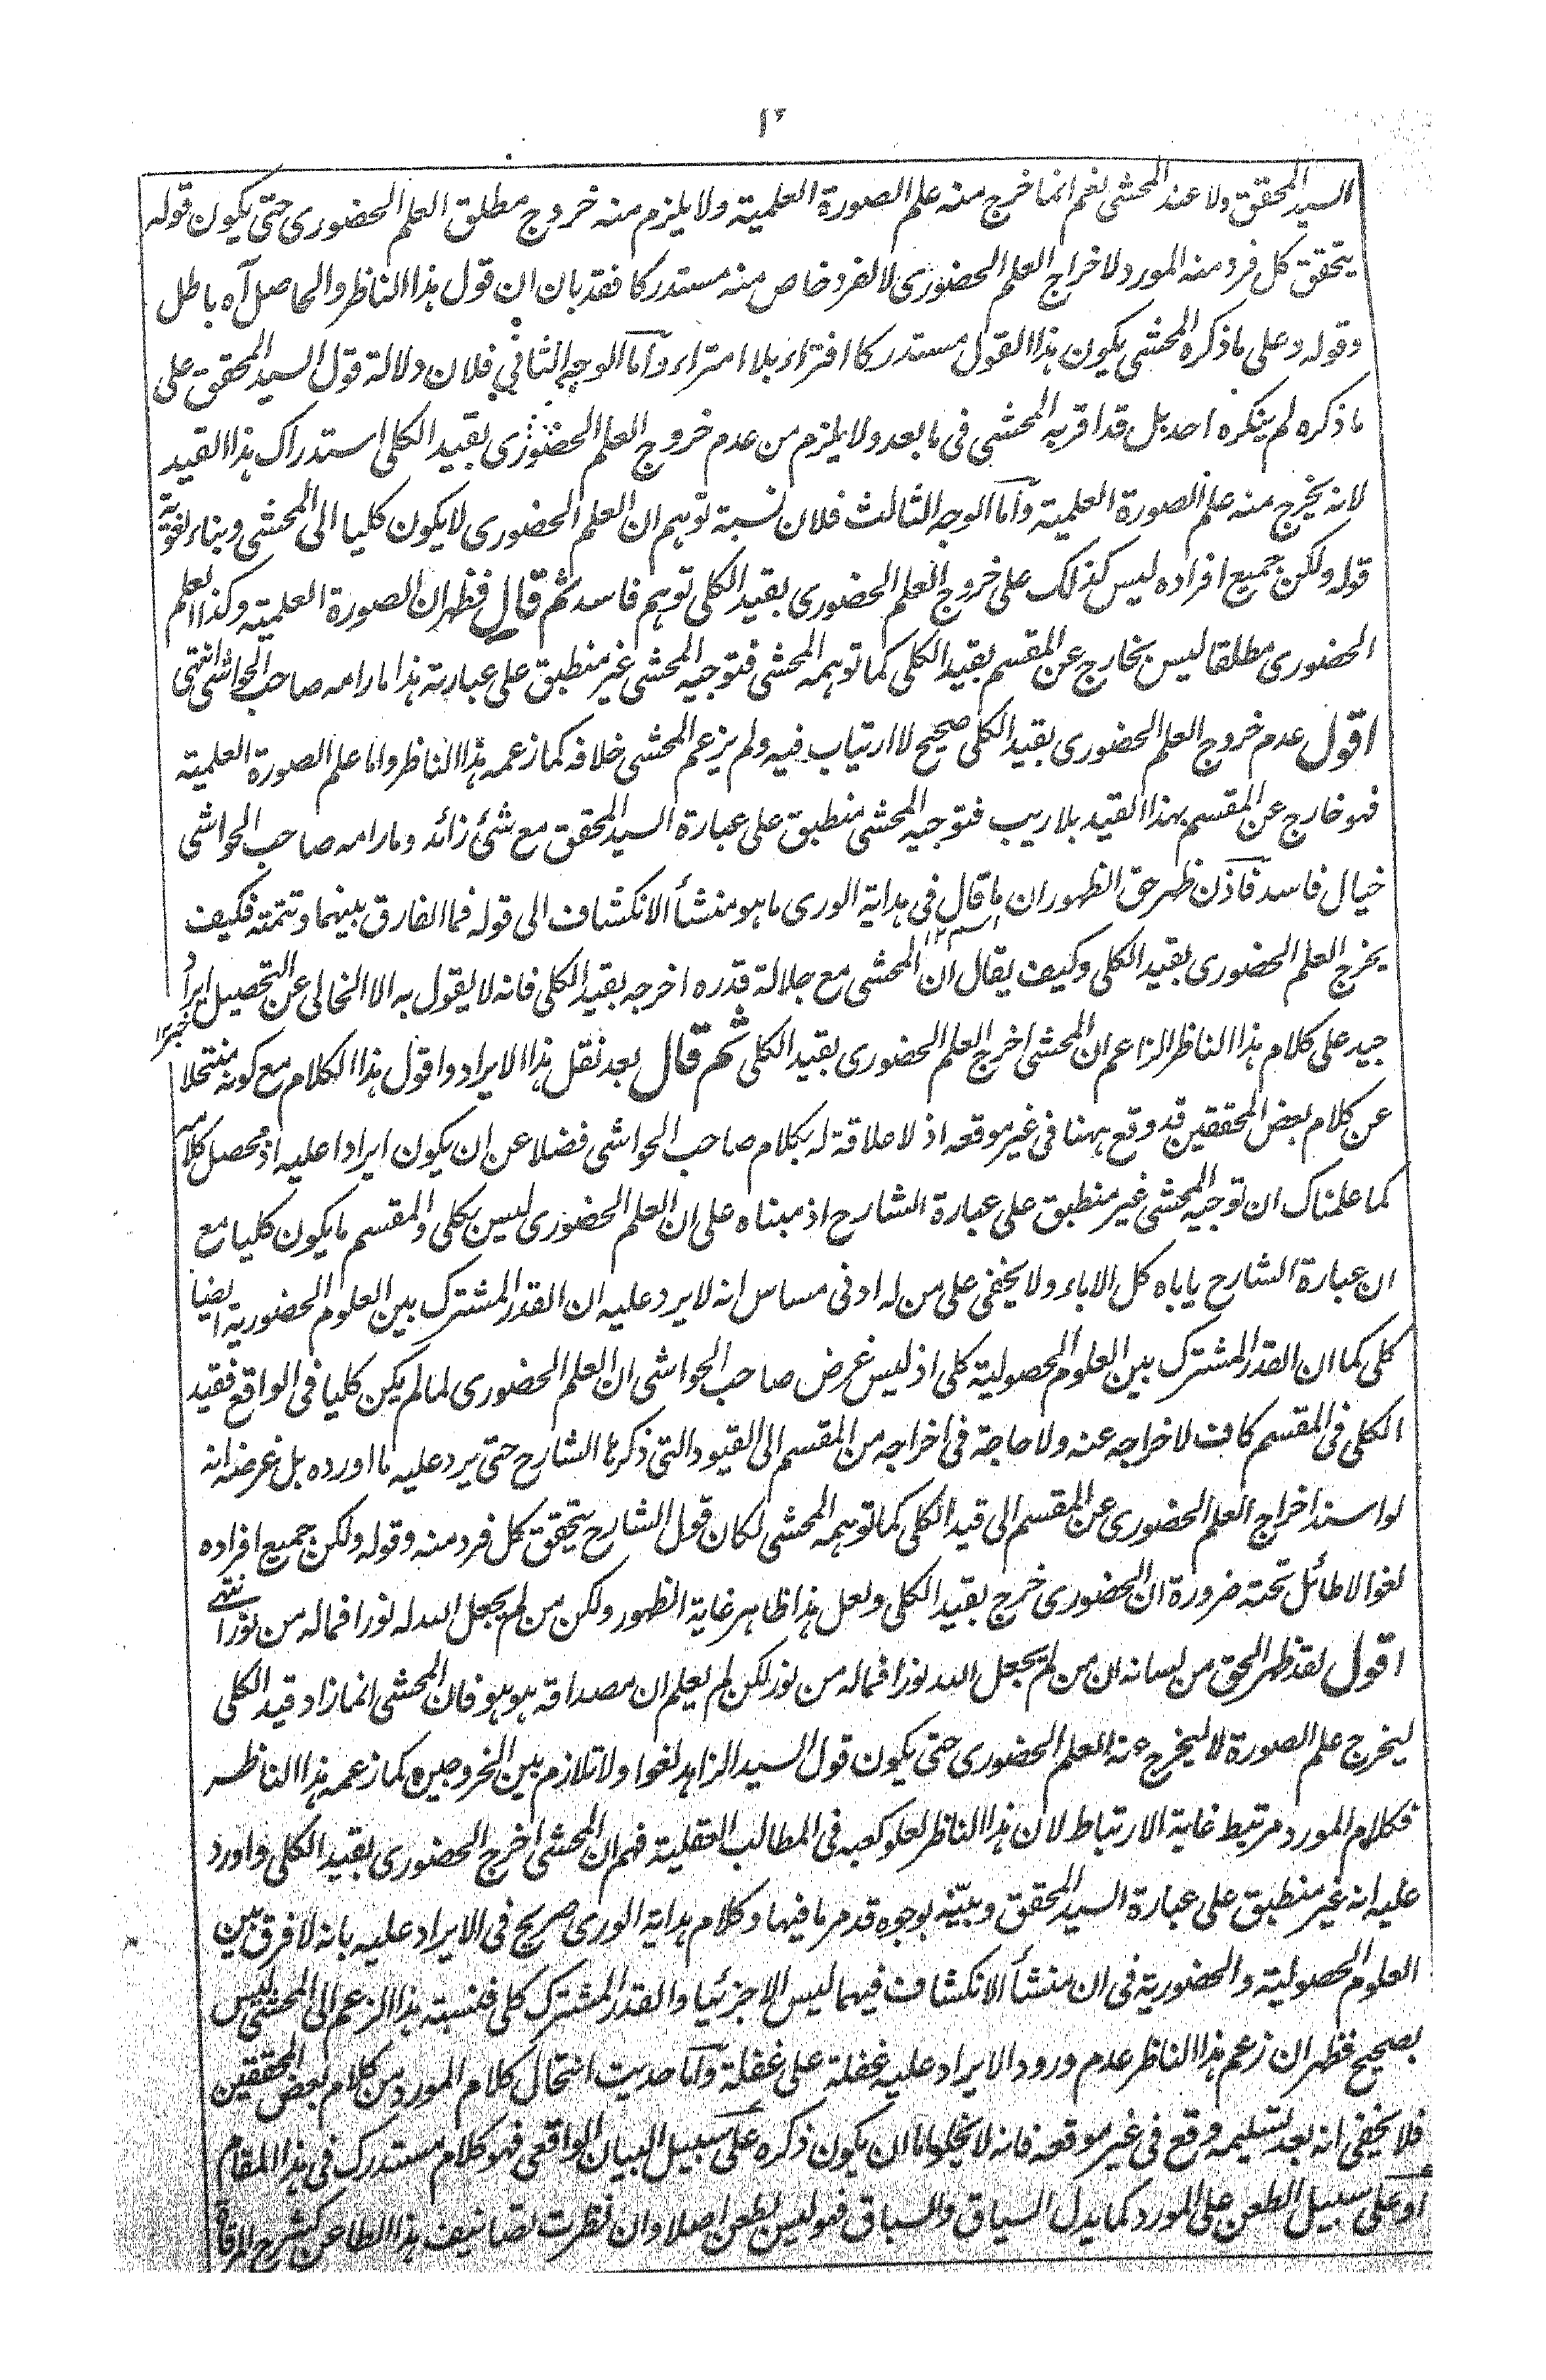 ١٢
السيد المحقق ولا عند المحشى نعم انما خرج منه علم الصورة العلمية ولا يلزم منه خروج مطلق العلم الحضورى حتى يكون قوله
يتحقق كل فرد منه المورد لاخراج العلم الحضورى لا لفرد خاص منه مستدركا فقد بان ان قول هذا الناظر والحاصل آه باطل
وقوله وعلى ما ذكره المحشى يكون هذا القول مستدركا افتراء بلا امتراء واما الوجه الثانى فلان دلالة قول السيد المحقق على
ما ذكره لم ينكره احد بل قد اقر به المحشى فى ما بعد ولا يلزم من عدم خروج العلم الحضورى بقيد الكلى استدراك هذا القيد
لانه يخرج منه علم الصورة العلمية واما الوجه الثالث فلان نسبة توهم ان العلم الحضورى لا يكون كليا الى المحشى وبناء لغوية
قوله ولكن جميع افراده ليس كذلك على خروج العلم الحضورى بقيد الكلى توهم فاسد ثم قال فظهر ان الصورة العلمية وكذا العلم
الحضورى مطلقا ليس بخارج عن المقسم بقيد الكلى كما توهمه المحشى فتوجيه المحشى غير منطبق على عبارته هذا ما رامه صاحب الحواشى انتهى
اقول عدم خروج العلم الحضورى بقيد الكلى صحيح لا ارتياب فيه ولم يزعم المحشى خلافه كما زعمه هذا الناظر واما علم الصورة العلمية
فهو خارج عن المقسم بهذا القيد بلا ريب فتوجيه المحشى منطبق على عبارة السيد المحقق مع شئ زائد وما رامه صاحب الحواشى
خيال فاسد فاذن ظهر حق الظهور ان ما قال فى هداية الورى ما هو منشأ الانكشاف الى قوله فما الفارق بينهما وتتمته فكيف
يخرج العلم الحضورى بقيد الكلى وكيف يقال ان المحشى مع جلالة قدره اخرجه بقيد الكلى فانه لا يقول به الا الخالى عن التحصيل ايراد
جيد على كلام هذا الناظر الزاعم ان المحشى اخرج العلم الحضورى بقيد الكلى ثم قال بعد نقل هذا الايراد واقول هذا الكلام مع كونه منتحلا
عن كلام بعض المحققين قد وقع ههنا فى غير موقعه اذ لا علاقة له بكلام صاحب الحواشى فضلا عن ان يكون ايرادا عليه اذ محصل كلامه
كما علمناك ان توجيه المحشى غير منطبق على عبارة الشارح اذ مبناه على ان العلم الحضورى ليس بكلى والمقسم ما يكون كليا مع
ان عبارة الشارح يا باه كل الاباء ولا يخفى على من له ادنى مساس انه لا يرد عليه ان القدر المشترك بين العلوم الحضورية ايضا
كلى كما ان القدر المشترك بين العلوم الحصولية كلى اذ ليس غرض صاحب الحواشى ان العلم الحضورى لما لم يكن كليا فى الواقع فقيد
الكلى فى المقسم كاف لاخراجه عنه ولا حاجة فى اخراجه من المقسم الى القيود التى ذكرها الشارح حتى يرد عليه ما اورده بل غرضه انه
لو اسند اخراج العلم الحضورى عن المقسم الى قيد الكلى كما توهمه المحشى لكان قول الشارح يتحقق كل فرد منه وقوله ولكن جميع افراده
لغوا لا طائل تحته ضرورة ان الحضورى خرج بقيد الكلى ولعل هذا ظاهر غاية الظهور ولكن من لم يجعل الله له نورا فما له من نور انتهى
اقول لقد ظهر الحق من لسانه ان من لم يجعل الله نورا فما له من نور لكن لم يعلم ان مصداقه هو هو فان المحشى انما زاد قيد الكلى
ليخرج علم الصورة لا ليخرج عنه العلم الحضورى حتى يكون قول السيد الزاهد لغوا ولا تلازم بين الخروجين كما زعمه هذا الناظر
فكلام المورد مرتبط غاية الارتباط لان هذا الناظر لعلو كعبه فى المطالب العقلية فهم ان المحشى اخرج الحضورى بقيد الكلى واورد
عليه انه غير منطبق على عبارة السيد المحقق وبينه بوجوه قد مر ما فيها وكلام هداية الورى صريح فى الايراد عليه بانه لا فرق بين
العلوم الحصولية والحضورية فى ان منشأ الانكشاف فيهما ليس الا جزئيا والقدر المشترك كلى فنسبة هذا الزعم الى المحشى ليس
بصحيح فظهر ان زعم هذا الناظر عدم ورود الايراد عليه غفلة على غفلة واما حديث انتحال كلام المورد من كلام بعض المحققين
فلا يخفى انه بعد تسليمه وقع فى غير موقعه فانه لا يخلو اما ان يكون ذكره على سبيل البيان الواقعى فهو كلام مستدرك فى هذا المقام
او على سبيل الطعن على المورد كما يدل السياق والسباق فهو ليس بطعن اصلا وان نظرت تصانيف هذا الطاعن كشرح المرقاة